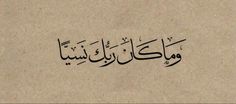 وَمَا كَانَ رَبُّكَ نَسِيًّا